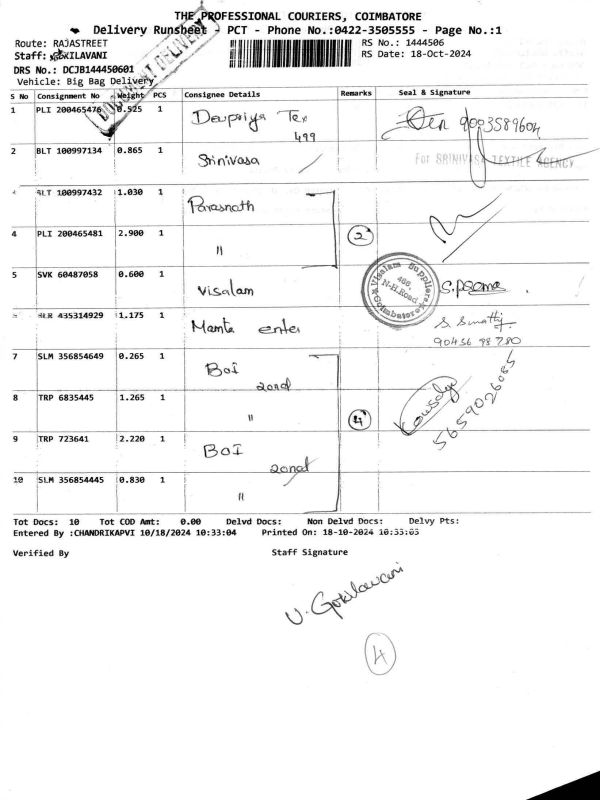 THE PROFESSIONAL COURIERS, COIMBATORE
Delivery Runsheet - PCT - Phone No.:0422-3505555 - Page No.:1
Route: RAJASTREET
RS No.: 1444506
Staff: GOKILAVANI
RS Date: 18-Oct-2024
DRS No.: DCJB144450601
Vehicle: Big Bag Delivery
DOCUMENT DELIVERY
S No Consignment No Weight PCS Consignee Details Remarks Seal & Signature
1 PLI 200465476 0.525 1 Devpriya Tex
499
9003589604
2 BLT 100997134 0.865 1 Srinivasa
For SRINIVASA TEXTILE AGENCY
BLT 100997432 1.030 1 Parasnath
4 PLI 200465481 2.900 1 "
2
5 SVK 60487058 0.600 1 Visalam
Visalam Supplies
N-H.Road
Coimbatore
1.175 1 Mamta enter
90436 98780
7 SLM 356854649 0.265 1 BOI
zonal
8 TRP 6835445 1.265 1 "
4
5659026085
9 TRP 723641 2.220 1 BOI
zonal
10 SLM 356854445 0.830 1 "
Tot Docs: 10 Tot COD Amt: 0.00 Delvd Docs: Non Delvd Docs: Delvy Pts:
Entered By :CHANDRIKAPVI 10/18/2024 10:33:04 Printed On: 18-10-2024 10:33:05
Verified By Staff Signature
V. Gokilavani
4